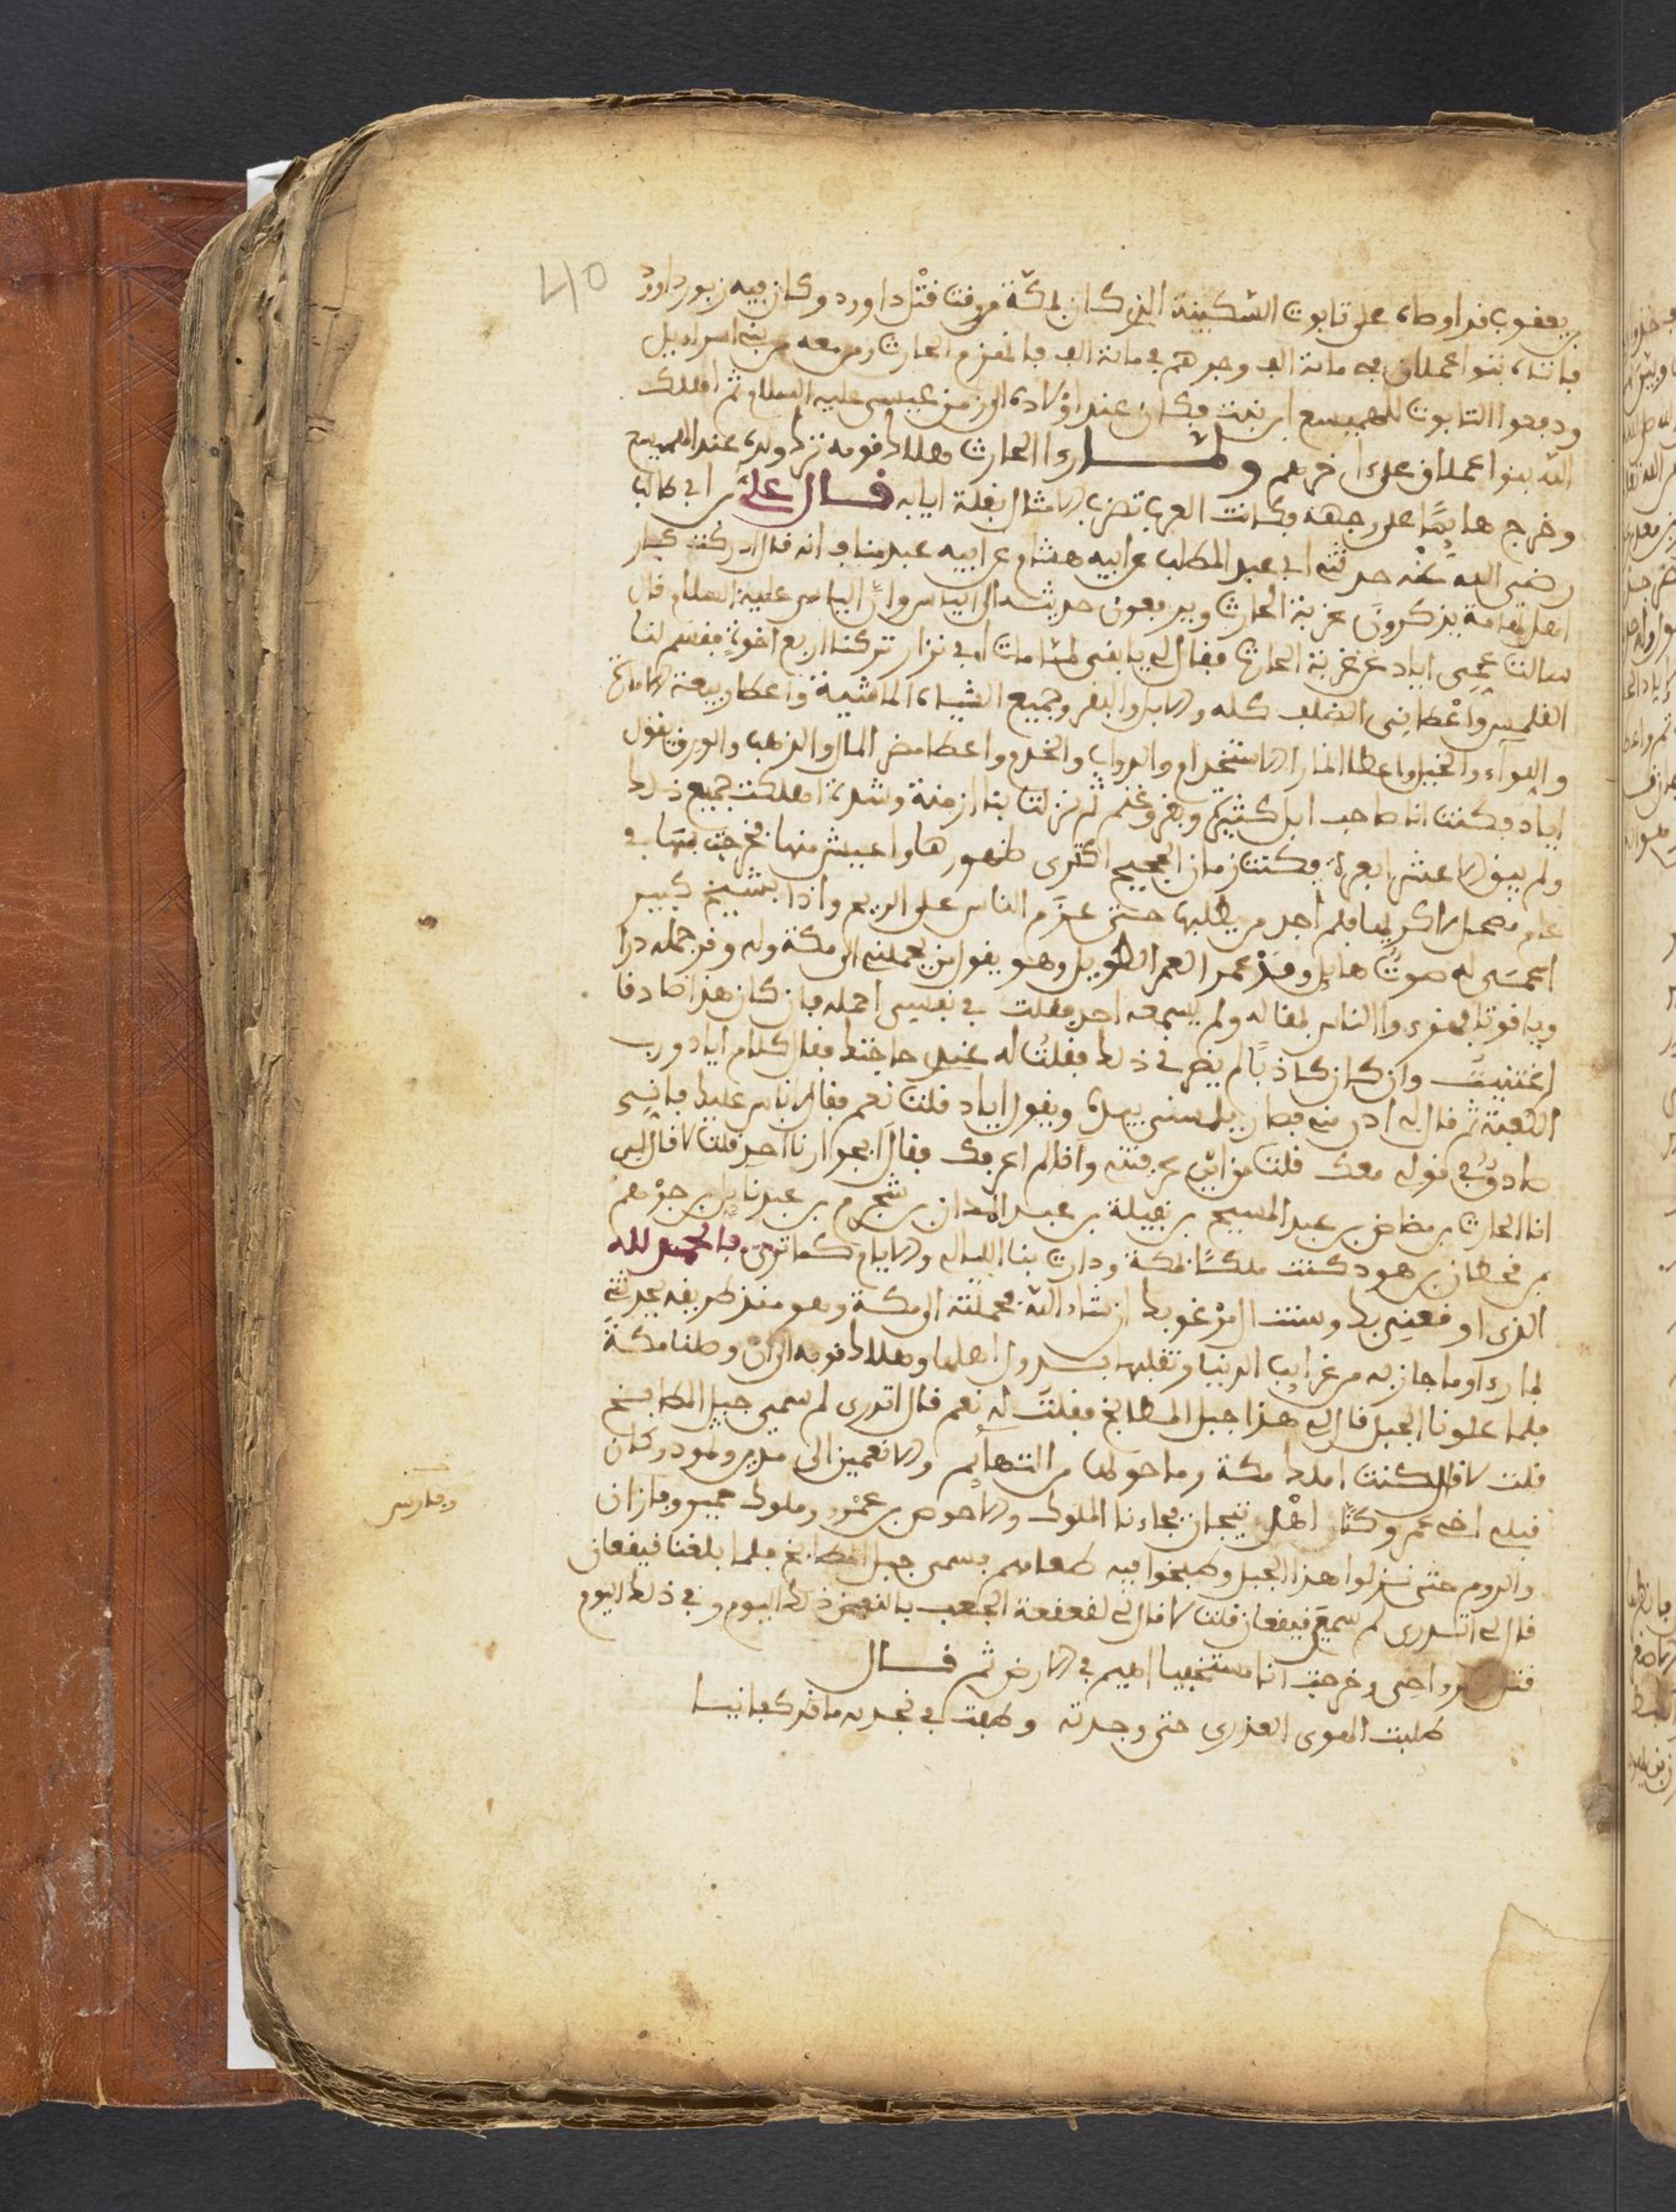 40
بن يعقوب قد اوطاه على تابوت السكينة الذي كان بمكة من وقت قتل داوود وكان فيه زبور داوود
فاتاه بنوا عملاق في مائة الف وجرهم في مائة الف فانهزم الحارث ومن معه من بني اسرائيل
ودفعوا التابوت للهميسع ابن نبت فكان عند اولاده الى زمن عيسى عليه السلام ثم اهلك
الله بنوا عملاق على اخرهم ولما رءا الحارث هلاك قومه ترك ولده عند الهميسع
وخرج هايما على وجهه وكانت العرب تضرب الامثال بغلة ايابه قال علي بن ابي طالب
رضي الله عنه حدثني ابي عبد المطلب عن ابيه هشام عن ابيه عبد مناف انه قال ادركت كبار
اهل تهامة يذكرون غربة الحارث ويرفعون حديثه الى الياس وان الياس عليه السلام قال
سالت عمي اياد عن غربة الحارث فقال لي يا بني لما مات ابي نزار تركنا اربع اخوة فقسم لنا
القلمس واعطاني الضلف كله والابل والبقر وجميع الشياه الماشية واعطا ربيعة الامارة
واللواء والخيل واعطا انمارا الاستخدام والدواب والخدم واعطا مضر المال والذهب والورق يقول
اياد فكنت انا صاحب ابل كثيرة وبقر وغنم ثم نزلت بنا ازمنة وشدة اهلكت جميع ذلك
ولم يبق الا عشر ابعرة فكنت زمان الحجيج اكري ظهورها واعيش منها فخرجت بها في
عام ممحل الاكريها فلم اجد من يطلبها حتى عزم الناس على الرجع واذا بشيخ كبير
اعمى له صوت هايل وقد عمر العمر الطويل وهو يقول من يحملني الى مكة وله وقر جمله درا
وياقوتا فهزءوا الناس لمقاله ولم يسمعه احد فقلت في نفسي احمله فان كان هذا صادقا
اغتنيت وان كان كاذبا لم يضرني ذلك فقلت له عندي حاجتك فقال كلام اياد ورب
الكعبة ثم قال لي ادن مني فصار يلمسني بيده ويقول اياد قلت نعم فقال لا باس عليك فاني
صادق في قوله معك قلت من اين عرفتني وانا لم اعرفك فقال ابجوارنا احد قلت لا قال لي
انا الحارث بن مضاض بن عبد المسيح بن نفيلة بن عبد المدان بن شجرم بن عبد ياليل بن جرهم
بن قحطان بن هود كنت ملكا بمكة ودارت بنا الليالي والايام كما ترى فالحمد لله
الذي اوقعني بك وستنال مرغوبك ان شاء الله فحملته الى مكة وهو منذ طريقه يحدثني
بما رءا وما جاز به من غرايب الدنيا وتقلبها بسدول اهلها وهلاك قومه الى ان وصلنا مكة
فلما علونا الجبل قال لي هذا جبل المطابخ فقلت له نعم قال اتدري لم سمي جبل المطابخ
قلت لا قال كنت املك مكة وما حولها من التهايم والانعمين الى مدين وثمود وكان
قبلي اخي عمرو كنا اهل تيجان فجاءنا الملوك والاحوص بن عمرو وملوك حمير وفازان
والروم حتى نزلوا هذا الجبل وطبخوا فيه طعامهم فسمي جبل المطابخ فلما بلغنا قيقعان
قال لي اتدري لم سمي قيقعان قلت لا قال لي لقعقعة الجعب بالقعن ذلك اليوم وفي ذلك اليوم
واخي وخرجت انا مستخفيا اهيم في الارض ثم قال
طلبت الهوى العذري حتى وجدته وطفت في نجد به ما قد كفانيا
وفارس